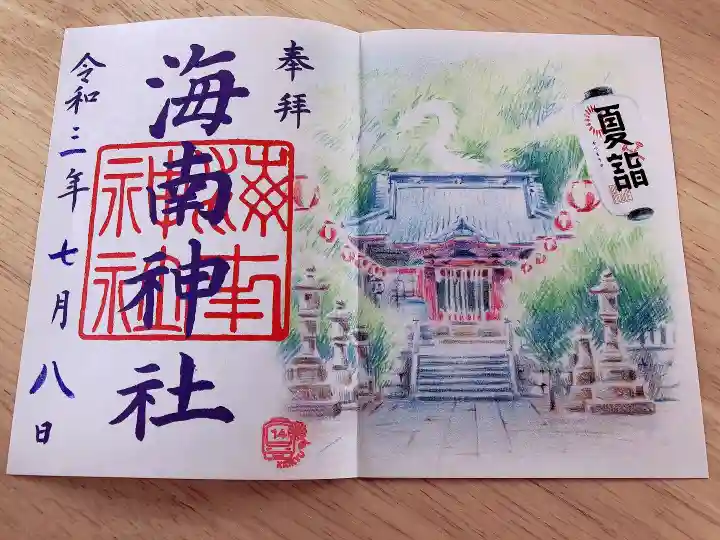 奉拝
海南神社
令和三年七月八日
海南神社
14
KEIKYU
夏詣